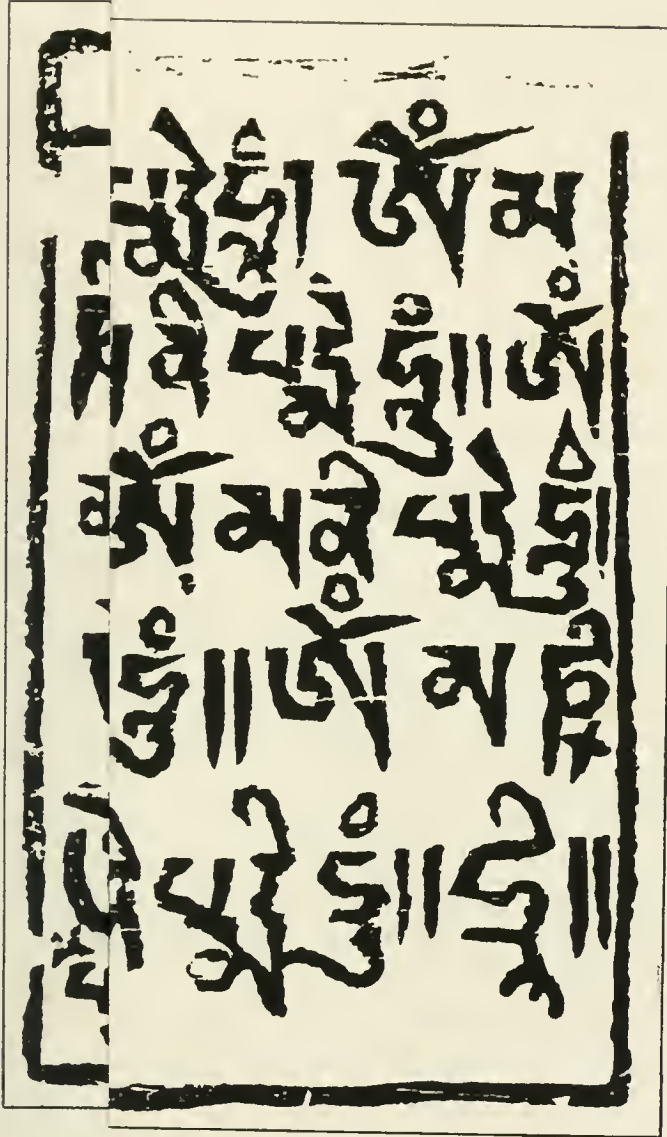 དྨེ ཧཱུྃ། ཨོཾ མ
མ ནི པདྨེ ཧཱུྃ།། ཨོཾ
ཨོཾ མ ནི པདྨེ ཧཱུྃ།
ཧཱུྃ།། ཨོཾ མ ཎི
པདྨེ ཧཱུྃ།། ཧྲཱི།།